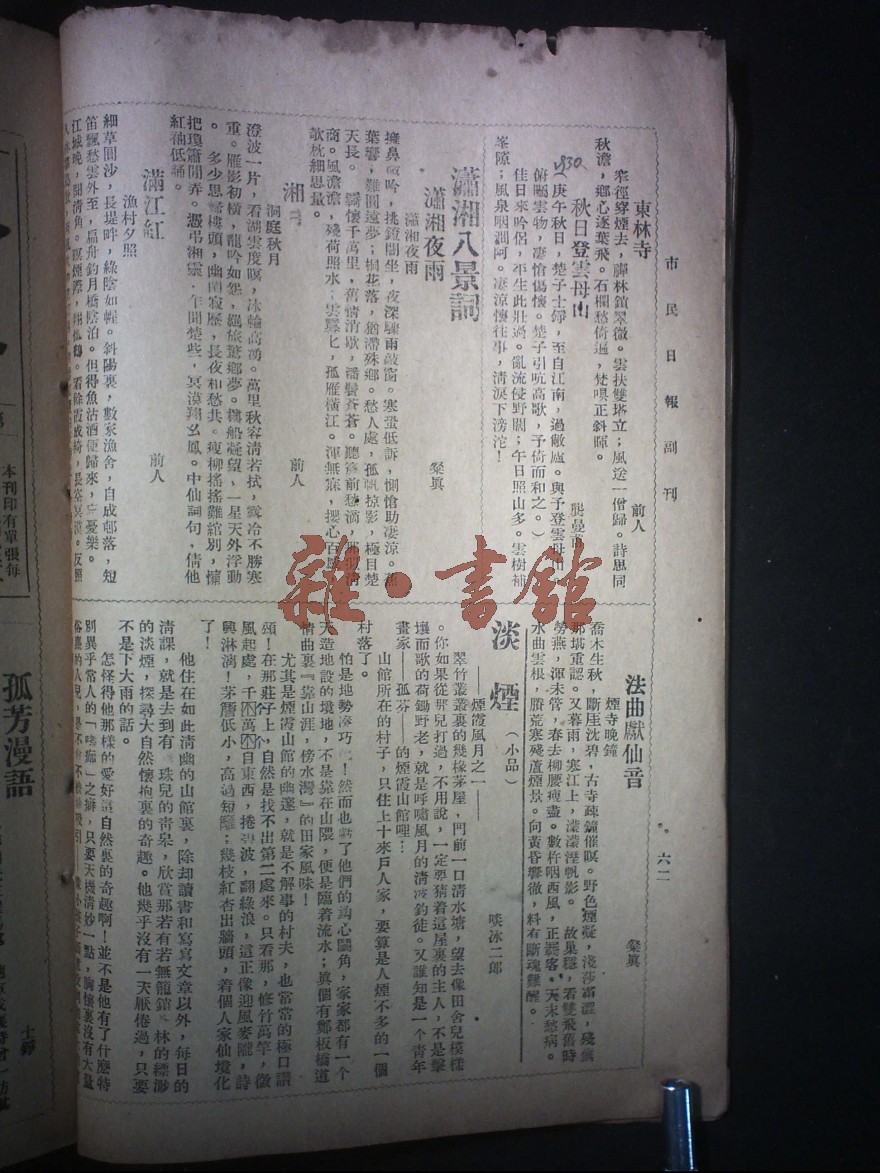 市民日報副刊
六二
東林寺
前人
窄徑穿煙去，禪林鎖翠微。雲扶雙塔立；風送一僧歸。詩思同
秋澹，鄉心逐葉飛。石欄愁倚遍，梵唄正斜暉。
1930
秋日登雲母山
龔曼
（庚午秋日，楚子士錚，至自江南，過敝處。與予登雲母山
俯矚雲物，凄愴傷懷。楚子引吭高歌，予倚而和之。）
佳日來吟侶，平生此壯過。亂流侵野闊；午日照山多。雲樹補
峯隙；風泉咽澗阿。凄涼懷往事，清淚下滂沱！
瀟湘八景詞
瀟湘夜雨
粲眞
瀟湘夜雨
擁鼻微吟，挑鐙閒坐，夜深驟雨敲窗。寒蛩低訴，惻愴助凄涼。蕉
葉響，難圓遠夢；桐花落，猶滯殊鄉。愁人處，孤帆掠影，極目楚
天長。 羈懷千萬里，舊情消歇，潘鬢蒼蒼。聽簷前愁滴，
商。風澹澹，殘荷照水；雲 孤雁橫江。渾無寐，攖心百
欹枕細思量。
湘
前人
洞庭秋月
澄波一片，看湖雲度暝，冰輪高湧。萬里秋容淸若拭，露冷不勝寒
重。雁影初橫，龍吟如怨，羈旅驚鄉夢。構船凝望，一星天外浮動
。 多少思婦樓頭，幽閨寂歷，長夜和愁共。瘦柳搖搖難綰別，慵
把瓊簫閒弄。憑弔湘靈，年聞楚些，冥漠翔幺鳳。中仙詞句，倩他
紅袖低誦。
滿江紅
前人
漁村夕照
細草圓沙，長堤畔，綠陰如幄。斜陽裏，數家漁舍，自成邨落，短
笛飄愁雲外至，扁舟釣月橋陰泊。但得魚沽酒便歸來，忘憂樂。
江城晚，聞淸角。暝煙際， 看餘霞成綺，長 反照
法曲獻仙音
粲眞
煙寺晚鐘
喬木生秋，斷崖沈碧，古寺疎鐘催暝。野色煙凝，淺莎霜澀，殘
那堪重認。又暮雨，寒江上，濛濛溼帆影。 故巢穩，看雙飛舊時
勞燕，渾未管，春去柳腰瘦盡。數杵咽西風，正羈客。天末愁病。
水曲雲根，賸荒寒殘蘆煙景。向黃昏響徹，料有斷魂難醒。
淡煙
（小品）
——煙霞風月之一——
啖冰二郎
翠竹叢叢裏的幾椽茅屋，門前一口清水塘，望去像田舍兒模樣
。你如果從那兒打過，不用說，一定要猜着這屋裏的主人，不是擊
壤而歌的荷鋤野老，就是呼嘯風月的清淡釣徒。又誰知是一個靑年
畫家——孤芬——的煙霞山館哩…
山館所在的村子，只住上十來戶人家，要算是人煙不多的一個
村落了。
怕是地勢湊巧！然而也虧了他們的鈎心鬬角，家家都有一個
天造地設的境地，不是靠在山隈，便是臨着流水；眞個有鄭板橋道
情曲裏『靠山涯，傍水灣』的田家風味！
尤其是煙霞山館的幽邃，就是不解事的村夫，也常常的極口讚
頌！在那莊子上，自然是找不出第二處來。只看那，修竹萬竿，微
風起處，千个萬个自東西，捲碧波，翻綠浪，這正像迎風麥隴，詩
興淋漓！茅簷低小，高過短籬；幾枝紅杏出牆頭，着個人家仙境化
了！
他住在如此淸幽的山館裏，除却讀書和寫寫文章以外，每日的
淸課，就是去到有 珠兒的靑皋，欣賞那若有若無籠鎖 林的縹渺
的淡煙，探尋大自然懷抱裏的奇趣。他幾乎沒有一天厭倦過，只要
不是下大雨的話。
怎怪得他那樣的愛好這自然裏的奇趣啊！並不是他有了什麽特
別異乎常人的「嗜痂」之癖，只要天機清妙一點，胸懷裏沒有大量
俗塵的人兒，
孤芳漫語
士錚
本刊印有單張每